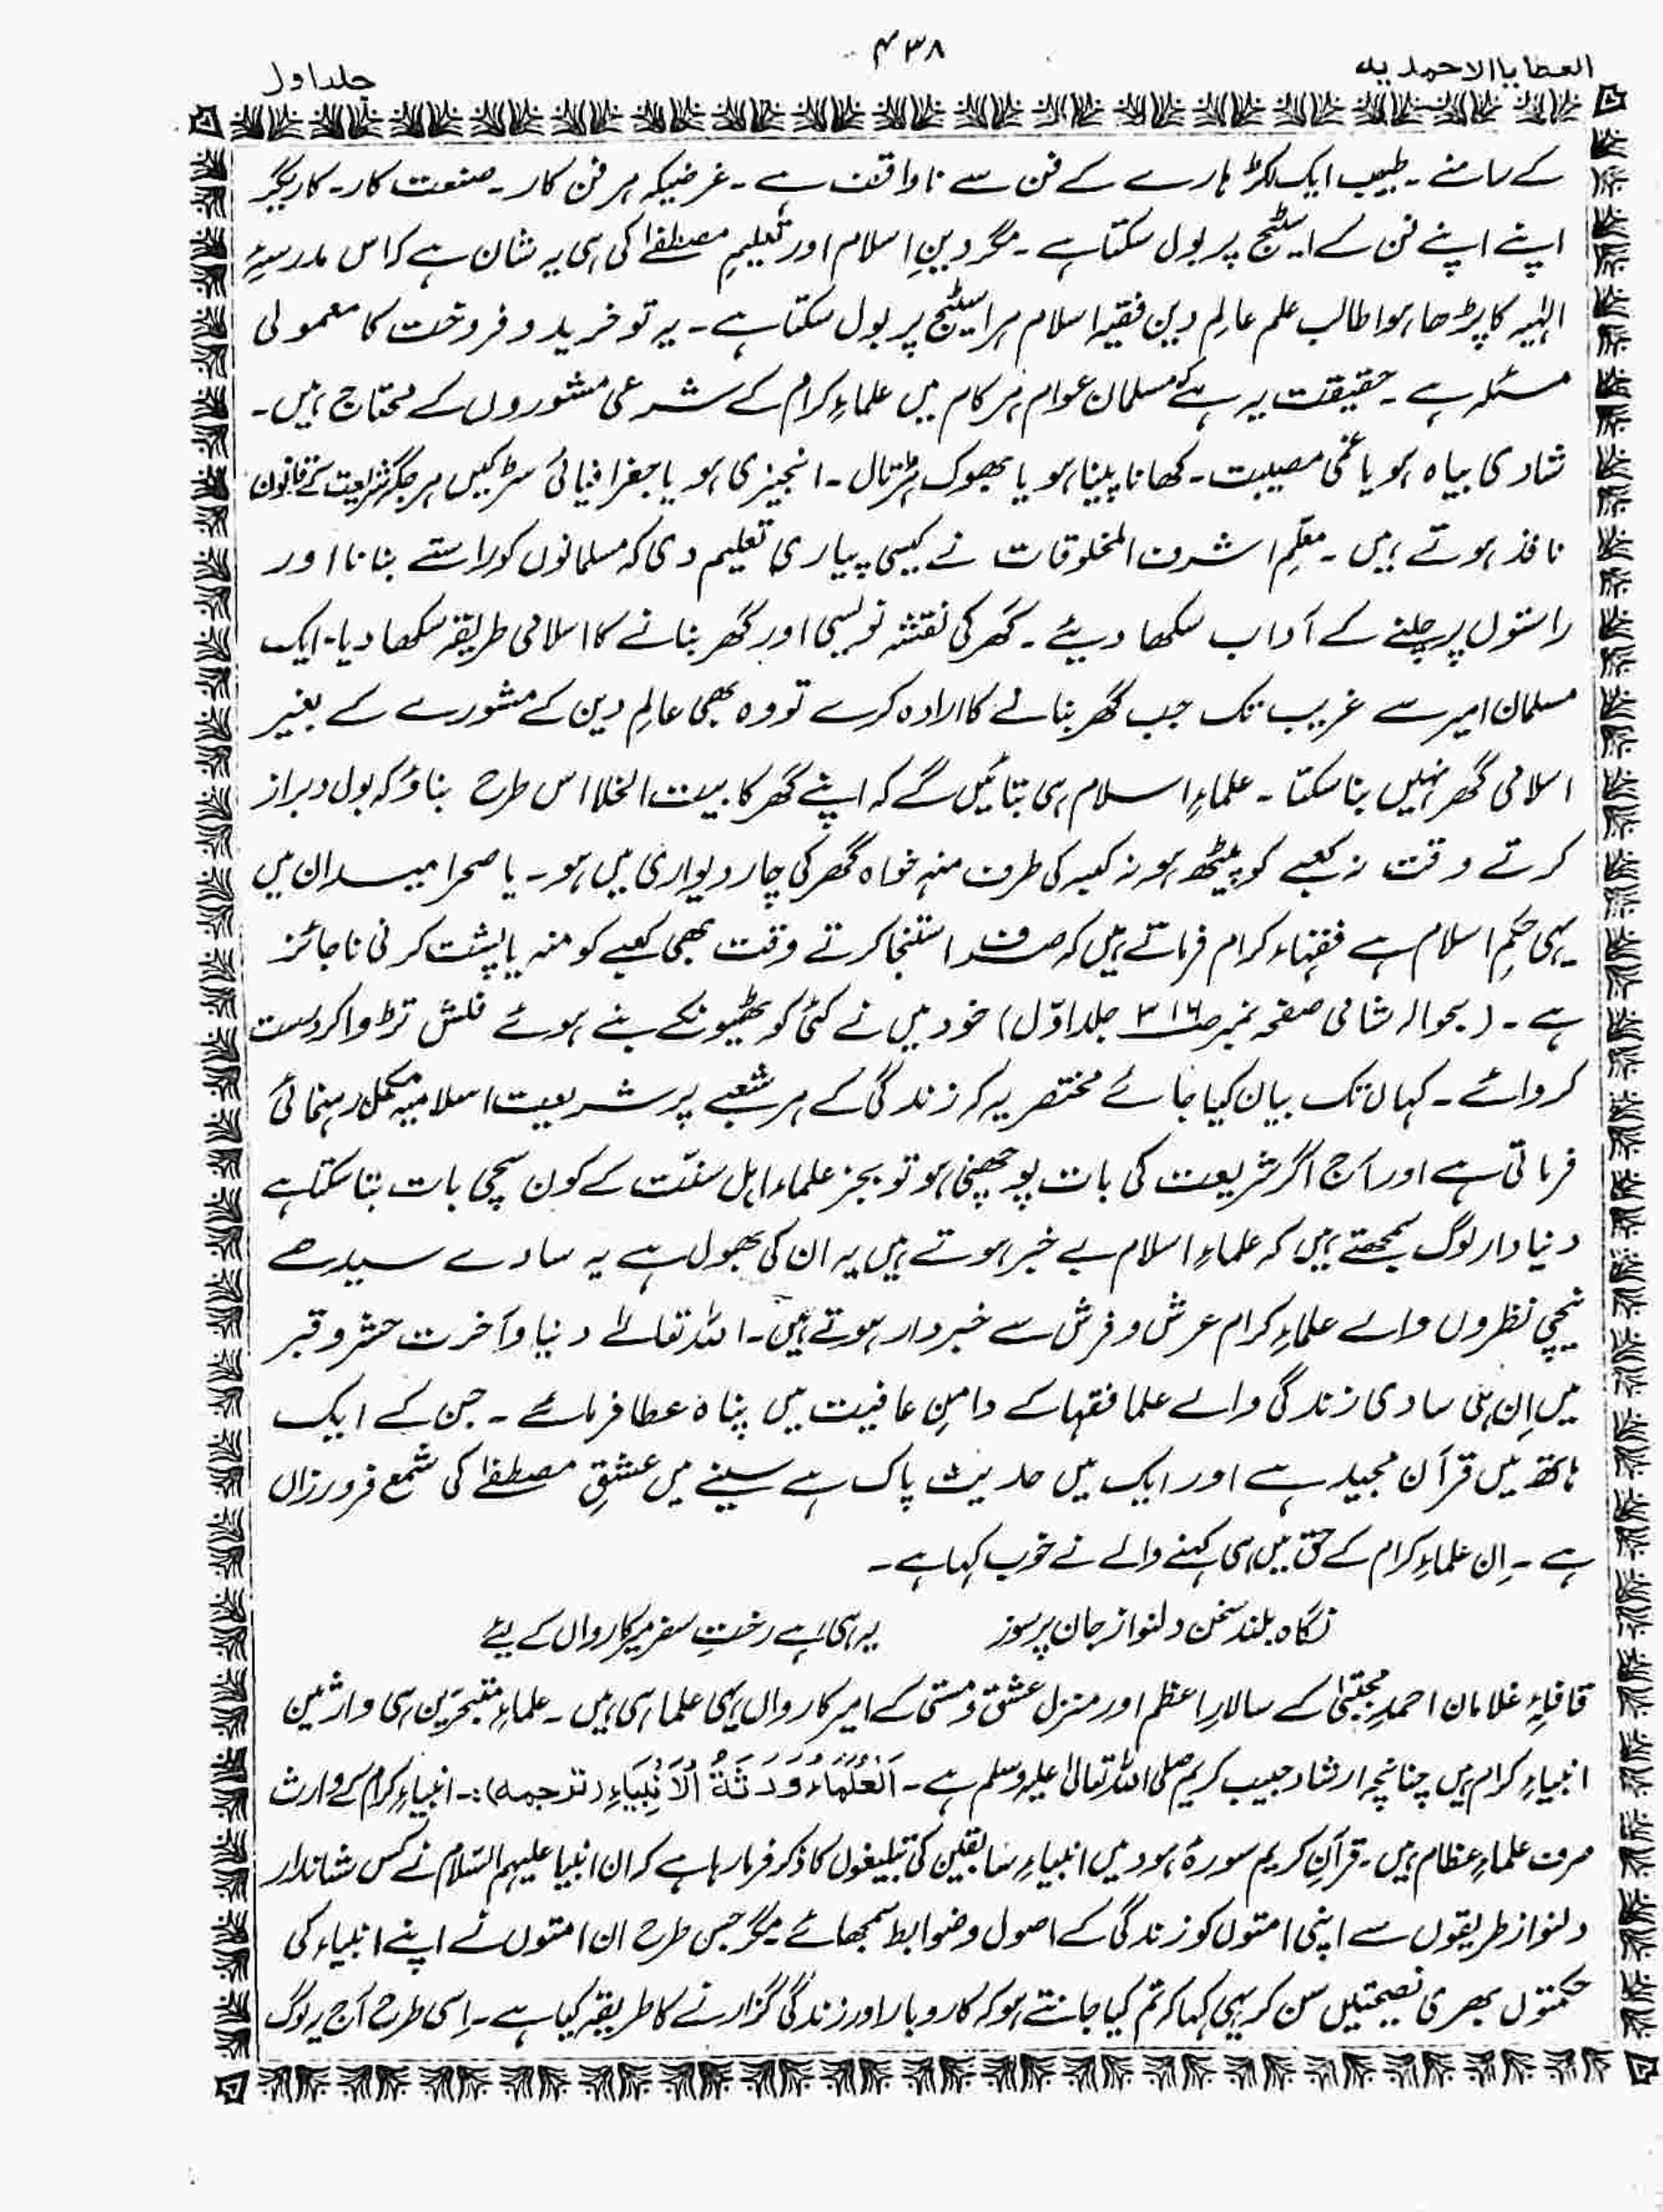 ۴۳۸
العطایا الاحمدیہ
جلد اول
کے سامنے ۔ طبیب ایک لکڑ ہارے کے فن سے ناواقف ہے ۔ غرضیکہ ہر فن کار ۔ صنعت کار ۔ کاریگر
اپنے اپنے فن کے اسٹیج پر بول سکتا ہے ۔ مگر دینِ اسلام اور تعلیمِ مصطفٰے کی ہی یہ شان ہے کہ اس مدرسہٴ
الٰہیہ کا پڑھا ہوا طالب علم عالمِ دین فقیہ اسلام ہر اسٹیج پر بول سکتا ہے ۔ یہ تو خرید و فروخت کا معمولی
مسئلہ ہے ۔ حقیقت یہ ہے کہ مسلمان عوام ہر کام میں علماءِ کرام کے شرعی مشوروں کے محتاج ہیں ۔
شادی بیاہ ہو یا غمی مصیبت ۔ کھانا پینا ہو یا بھوک ہڑتال ۔ انجینری ہو یا جغرافیائی سڑکیں ہر جگہ شریعت کے قانون
نافذ ہوتے ہیں ۔ معلّمِ اشرف المخلوقات نے کیسی پیاری تعلیم دی کہ مسلمانوں کو راستے بنانا اور
راستوں پر چلنے کے آداب سکھا دیئے ۔ گھر کی نقشہ نویسی اور گھر بنانے کا اسلامی طریقہ سکھا دیا ۔ ایک
مسلمان امیر سے غریب تک جب گھر بنانے کا ارادہ کرے تو وہ بھی عالمِ دین کے مشورے کے بغیر
اسلامی گھر نہیں بنا سکتا ۔ علماءِ اسلام ہی بتائیں گے کہ اپنے گھر کا بیت الخلا اس طرح بناؤ کہ بول و براز
کرتے وقت نہ کعبے کو پیٹھ ہو نہ کعبہ کی طرف منہ خواہ گھر کی چار دیواری میں ہو ۔ یا صحرا میدان میں
یہی حکمِ اسلام ہے فقہاء کرام فرماتے ہیں کہ صرف استنجا کرتے وقت بھی کعبے کو منہ یا پشت کرنی ناجائز
ہے ۔ (بحوالہ شامی صفحہ نمبر ص۳۱۶ جلد اوّل) خود میں نے کئی کوٹھیوں کے بنے ہوئے فلش تڑوا کر درست
کروائے ۔ کہاں تک بیان کیا جائے مختصر یہ کہ زندگی کے ہر شعبے پر شریعت اسلامیہ مکمل رہنمائی
فرماتی ہے اور آج اگر شریعت کی بات پوچھنی ہو تو بجز علماء اہل سنّت کے کون سچی بات بتا سکتا ہے
دنیا دار لوگ سمجھتے ہیں کہ علماءِ اسلام بے خبر ہوتے ہیں یہ ان کی بھول ہے یہ سادے سیدھے
نیچی نظروں والے علماءِ کرام عرش و فرش سے خبردار ہوتے ہیں ۔ اللہ تعالےٰ دنیا و آخرت حشر و قبر
میں اِن ہی سادی زندگی والے علما فقہا کے دامنِ عافیت میں پناہ عطا فرمائے ۔ جن کے ایک
ہاتھ میں قرآن مجید ہے اور ایک میں حدیث پاک ہے سینے میں عشقِ مصطفٰے کی شمع فروزاں
ہے ۔ اِن علماءِ کرام کے حق میں ہی کہنے والے نے خوب کہا ہے ۔
نگاہ بلند سخن دلنواز جان پرسوز یہ ہی ہے رختِ سفر میر کارواں کے لیئے
قافلہٴ غلامان احمدِ مجتبیٰ کے سالارِ اعظم اور منزل عشق و مستی کے امیر کارواں یہی علما ہی ہیں ۔ علماءِ متبحرین ہی وارثین
انبیاءِ کرام ہیں چنانچہ ارشاد حبیب کریم صلی اللہ تعالیٰ علیہ وسلم ہے ۔ اَلْعُلَمَاءُ وَرَثَةُ الْاَنْبِیَاءِ (ترجمہ) :۔ انبیاءِ کرام کے وارث
صرف علماءِ عظام ہیں ۔ قرآنِ کریم سورۂ ہود میں انبیاءِ سابقین کی تبلیغوں کا ذکر فرما رہا ہے کہ ان انبیا علیہم السّلام نے کس شاندار
دلنواز طریقوں سے اپنی امتوں کو زندگی کے اصول و ضوابط سمجھائے مگر جس طرح ان امتوں نے اپنے انبیاء کی
حکمتوں بھری نصیحتیں سن کر یہی کہا کہ تم کیا جانتے ہو کہ کاروبار اور زندگی گزارنے کا طریقہ کیا ہے ۔ اِسی طرح آج یہ لوگ